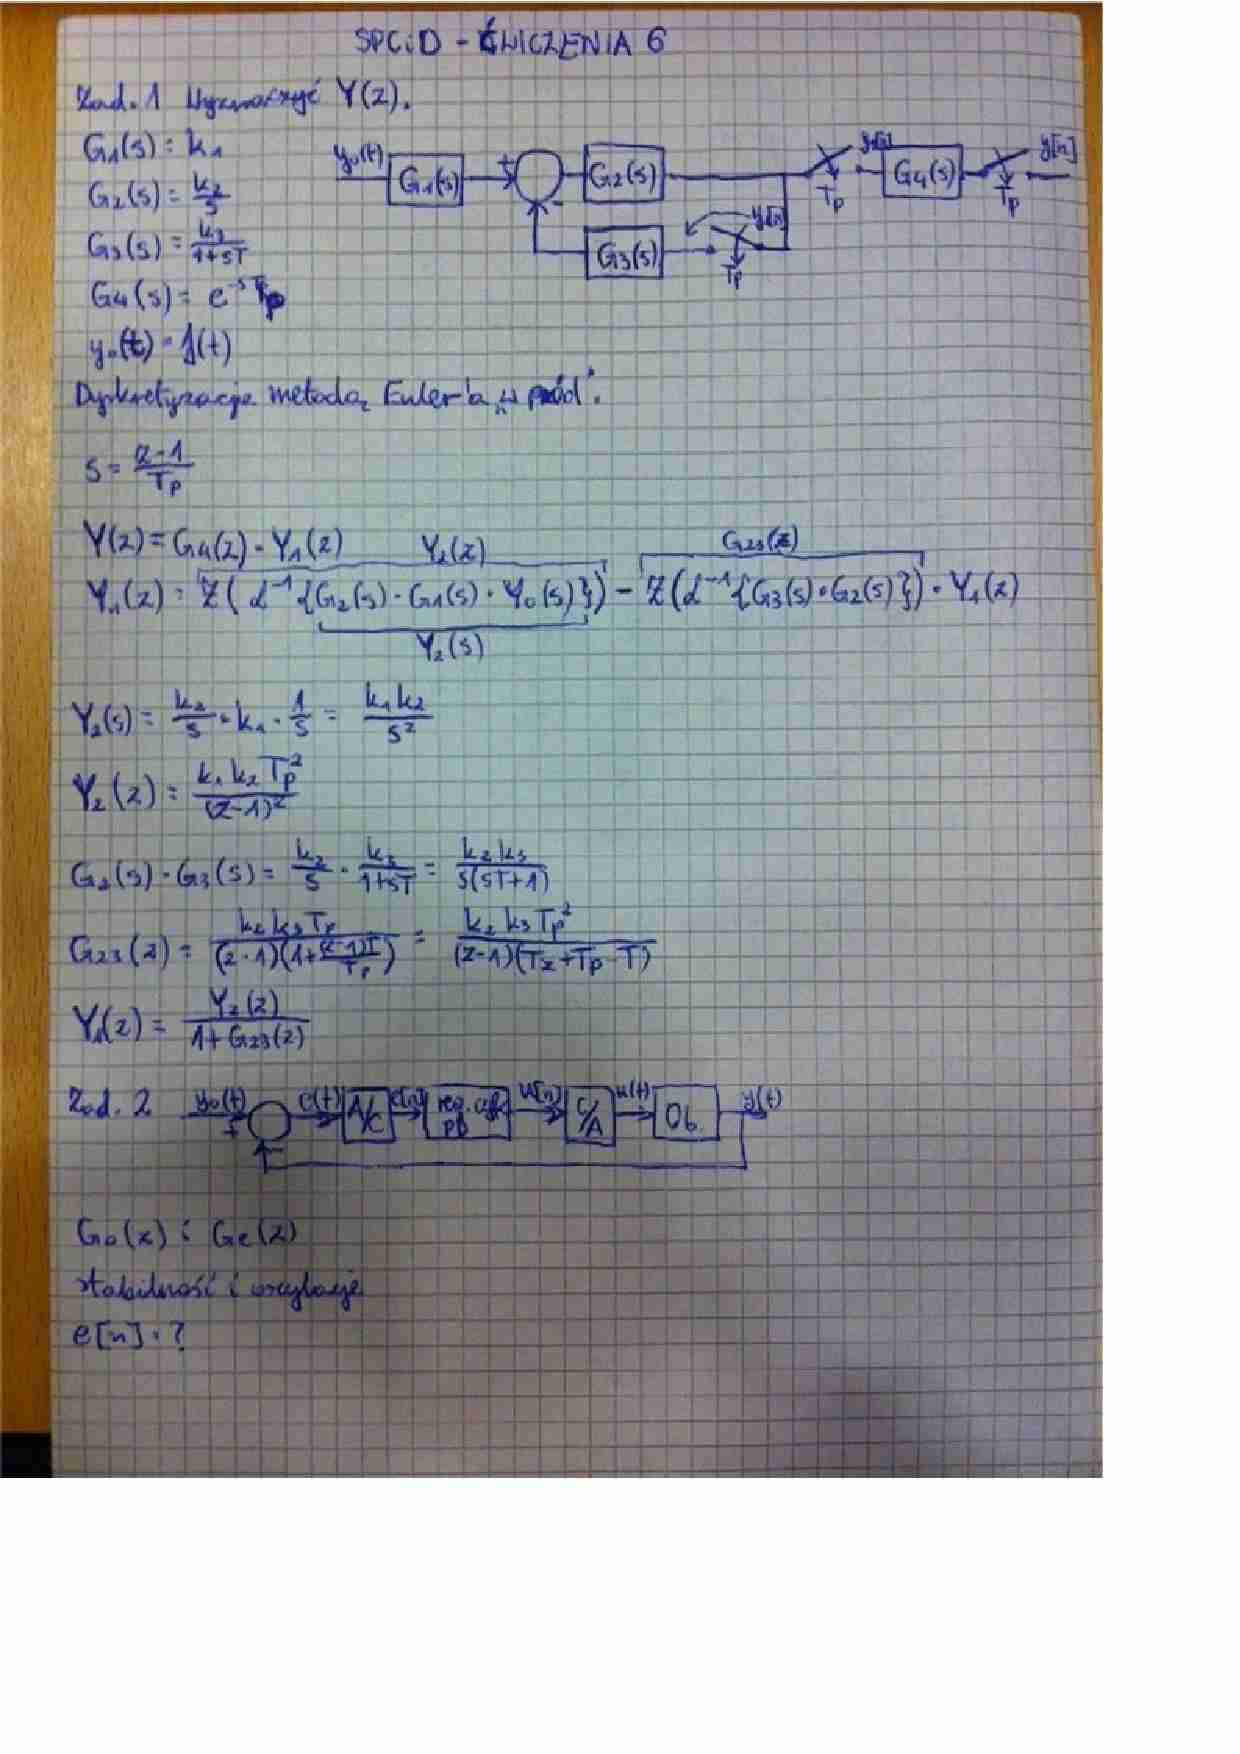 SPCiD - ĆWICZENIA 6
Zad. 1 Wyznaczyć Y(z).
G₁(s) = k₁
G₂(s) = k₂/s
G₃(s) = k₃/(1+sT)
G₄(s) = e^(-sTp)
y₀(t) = 1(t)
y₀(t) G₁(s) + - G₂(s) Tp G₄(s) Tp y[n]
G₃(s) Tp
Dyskretyzacja metodą Euler'a "w przód".
s = (z-1)/Tp
Y(z) = G₄(z) · Y₁(z) Y₂(z) G₂₃(z)
Y₁(z) = Z( L⁻¹{G₂(s) · G₁(s) · Y₀(s)}) - Z(L⁻¹{G₃(s) · G₂(s)}) · Y₁(z)
Y₂(s)
Y₂(s) = k₂/s · k₁ · 1/s = k₁k₂/s²
Y₂(z) = k₁k₂Tp²/(z-1)²
G₂(s) · G₃(s) = k₂/s · k₃/(1+sT) = k₂k₃/(s(sT+1))
G₂₃(z) = k₂k₃Tp/((z-1)(1+(z-1)T/Tp)) = k₂k₃Tp²/((z-1)(Tz+Tp-T))
Y₁(z) = Y₂(z)/(1+G₂₃(z))
Zad. 2 y₀(t) + - e(t) A/C e[n] reg. cyfr. PD u[n] C/A u(t) Ob. y(t)
G₀(z) i Ge(z)
stabilność i oscylacje
e[n] = ?